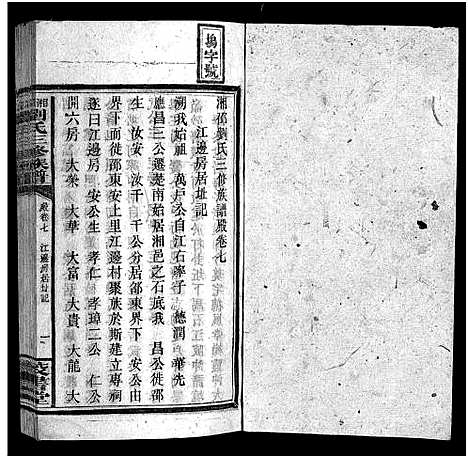 塲字號
湘邵劉氏三修族譜殿卷七
江邊房居址記
溯我始祖　萬戶公自江右
應昌三公遷楚南始居湘邑之石底我　昌公徙邵
生　汝安　汝千　二公分居邵東界下　安公由
界下而徙邵東安上里江邊村聚族於斯建立專祠
遂曰江邊房　安公生　孝仁　孝璋二公　仁公
開六房　大榮　大華　大富　大貴　大龍　大
劉氏三修族譜
殿卷七　江邊房居址記
一